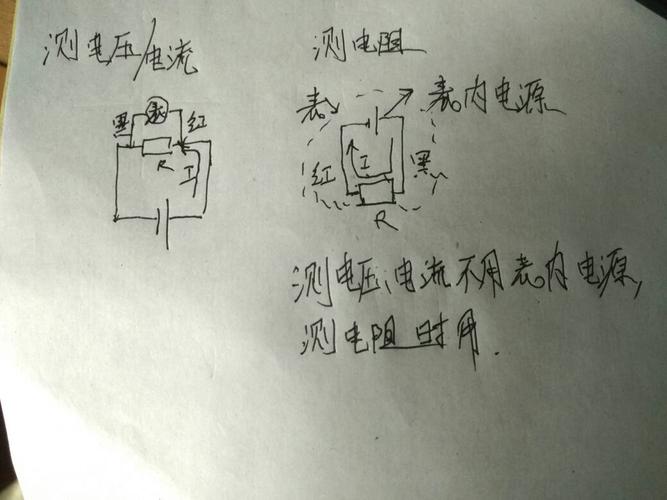 测电压/电流
测电阻
黑
表
红
R
I
表
表内电源
红
I
黑
R
测电压、电流不用表内电源,
测电阻时用.